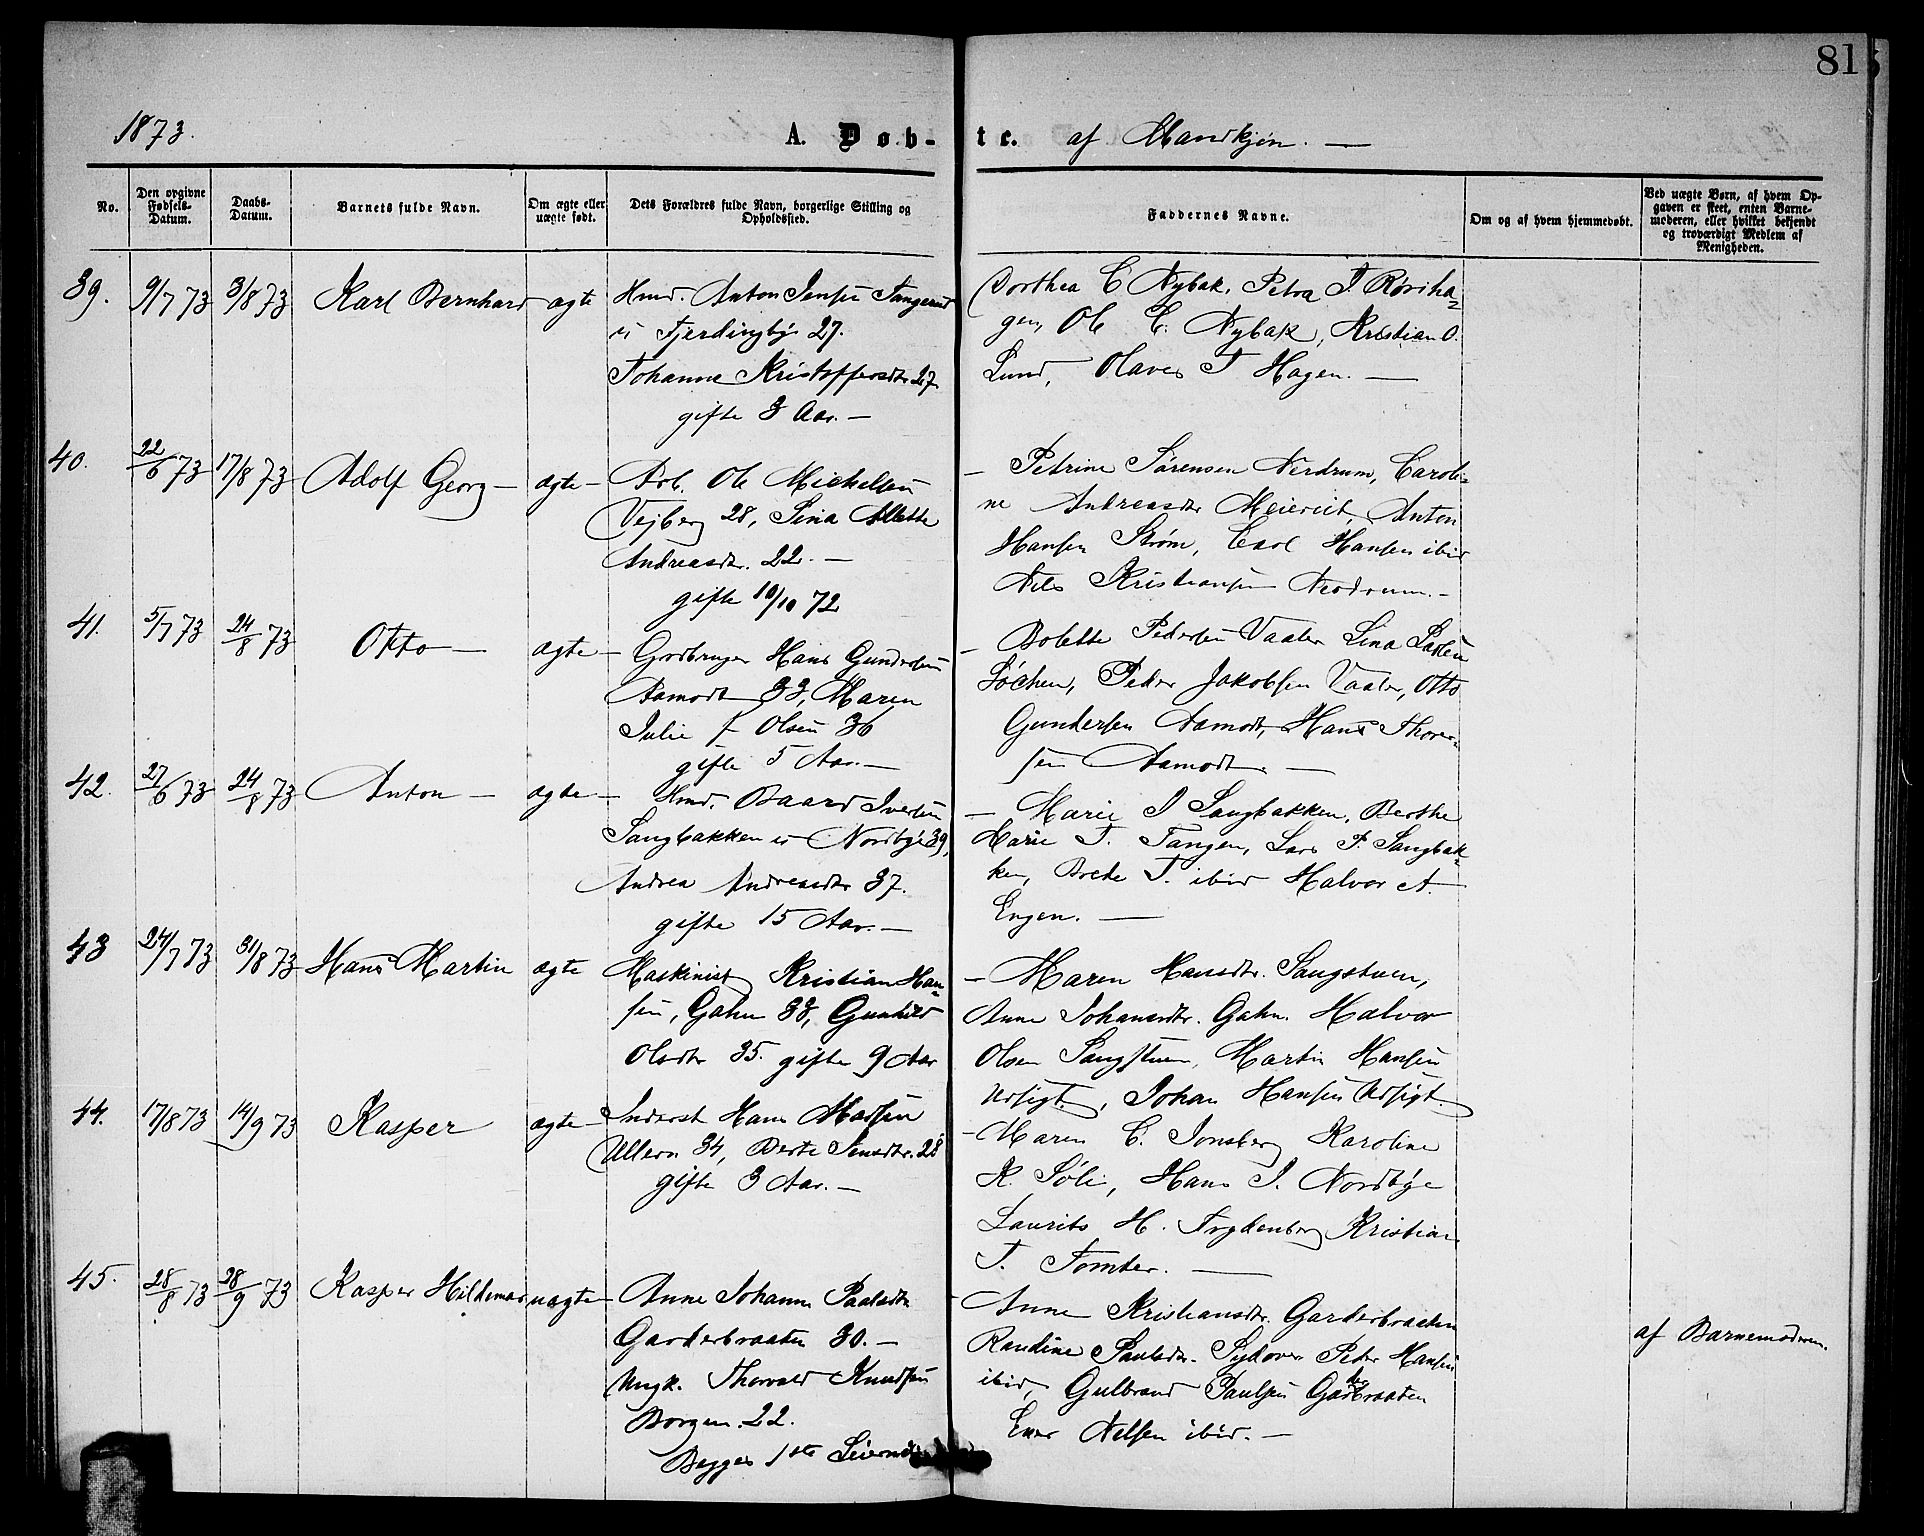 81
1873.
A. Døb-
te. af Mandkjøn. —
No.
Den opgivne Fødsels-Datum.
Daabs-Datum.
Barnets fulde Navn.
Om ægte eller uægte født.
Dets Forældres fulde Navn, borgerlige Stilling og Opholdssted.
Faddernes Navne.
Om og af hvem hjemmedøbt.
Ved uægte Børn, af hvem Opgaven er skeet, enten Barnemoderen, eller hvilket bekjendt og troværdigt Medlem af Menigheden.
39. 9/7 73 3/8 73 Karl Bernhard ægte Hmd. Anton Jensen Tangerud
u Fjerdingby 27.
Johanne Kristoffersdtr 27
gifte 3 Aar. —
Dorthea C Nybak, Petra J.
gen, Ole C. Nybak, Kristian O.
Lund, Olaves T Hagen. —
40. 22/6 73 17/8 73 Adolf Georg — ægte — Arb. Ole Michelsen
Vejberg 28, Lina Alette
Andreasdtr. 22. —
gifte 10/10 72
— Petrine Sørensen Nerdrum, Caroli-
ne Andreasdtr Meieriet, Anton
Hansen Strøm, Carl Hansen ibid
Nils Kristiansen Nerdrum. —
41. 5/7 73 24/8 73 Otto — ægte — Grdbruger Hans Gundersen
Aamodt 33, Maren
Julie f Olsen 36
gifte 5 Aar. —
— Bolette Pedersen Vaaler Lina Larsen
Løchen, Peder Jakobsen Vaaler, Otto
Gundersen Aamodt, Hans Thorer-
sen Aamodt. —
42. 27/6 73 24/8 73 Anton — ægte — Hmd. Baard Iversen
Sangbakken u Nordbye 39,
Andrea Andreasdtr 37.
gifte 15 Aar. —
— Marie J Sangbakken, Berthe
Marie T. Tangen, Lars P. Sangbak-
ken, Brede T. ibid Halvor A.
Engen. —
43 24/7 73 31/8 73 Hans Martin ægte Maskinist Kristian Han-
sen, Gahn 33, Gunhild
Olsdtr 35. gifte 9 Aar
— Maren Hansdtr. Sangstuen,
Anne Johansdtr. Gahn. Halvor
Olsen Sangstuen, Martin Hansen
Udsigt, Johan Hansen Udsigt
44. 17/8 73 14/9 73 Kasper ægte — Inderst Hans Madsen
Ullern 34, Berte Jensdtr. 28
gifte 3 Aar. —
— Maren C. Jonsberg Karoline
K. Søli, Hans J. Nordbye
Laurits H. Frydenberg Kristian
T. Tomter. —
45. 28/8 73 28/9 73 Kasper Hildemar uægte — Anne Johanne Paulsdtr
Garderbraaten 30. —
Ungk. Thorvald Knudsen
Borgen 22.
Begges 1ste
— Anne Kristiansdtr. Garderbraaten
Randine Paulsdtr. Sydover Peder Hansen
ibid, Gulbrand Paulsen Garderbraaten
Ener Nelsen ibid. —
af Barnemoderen.